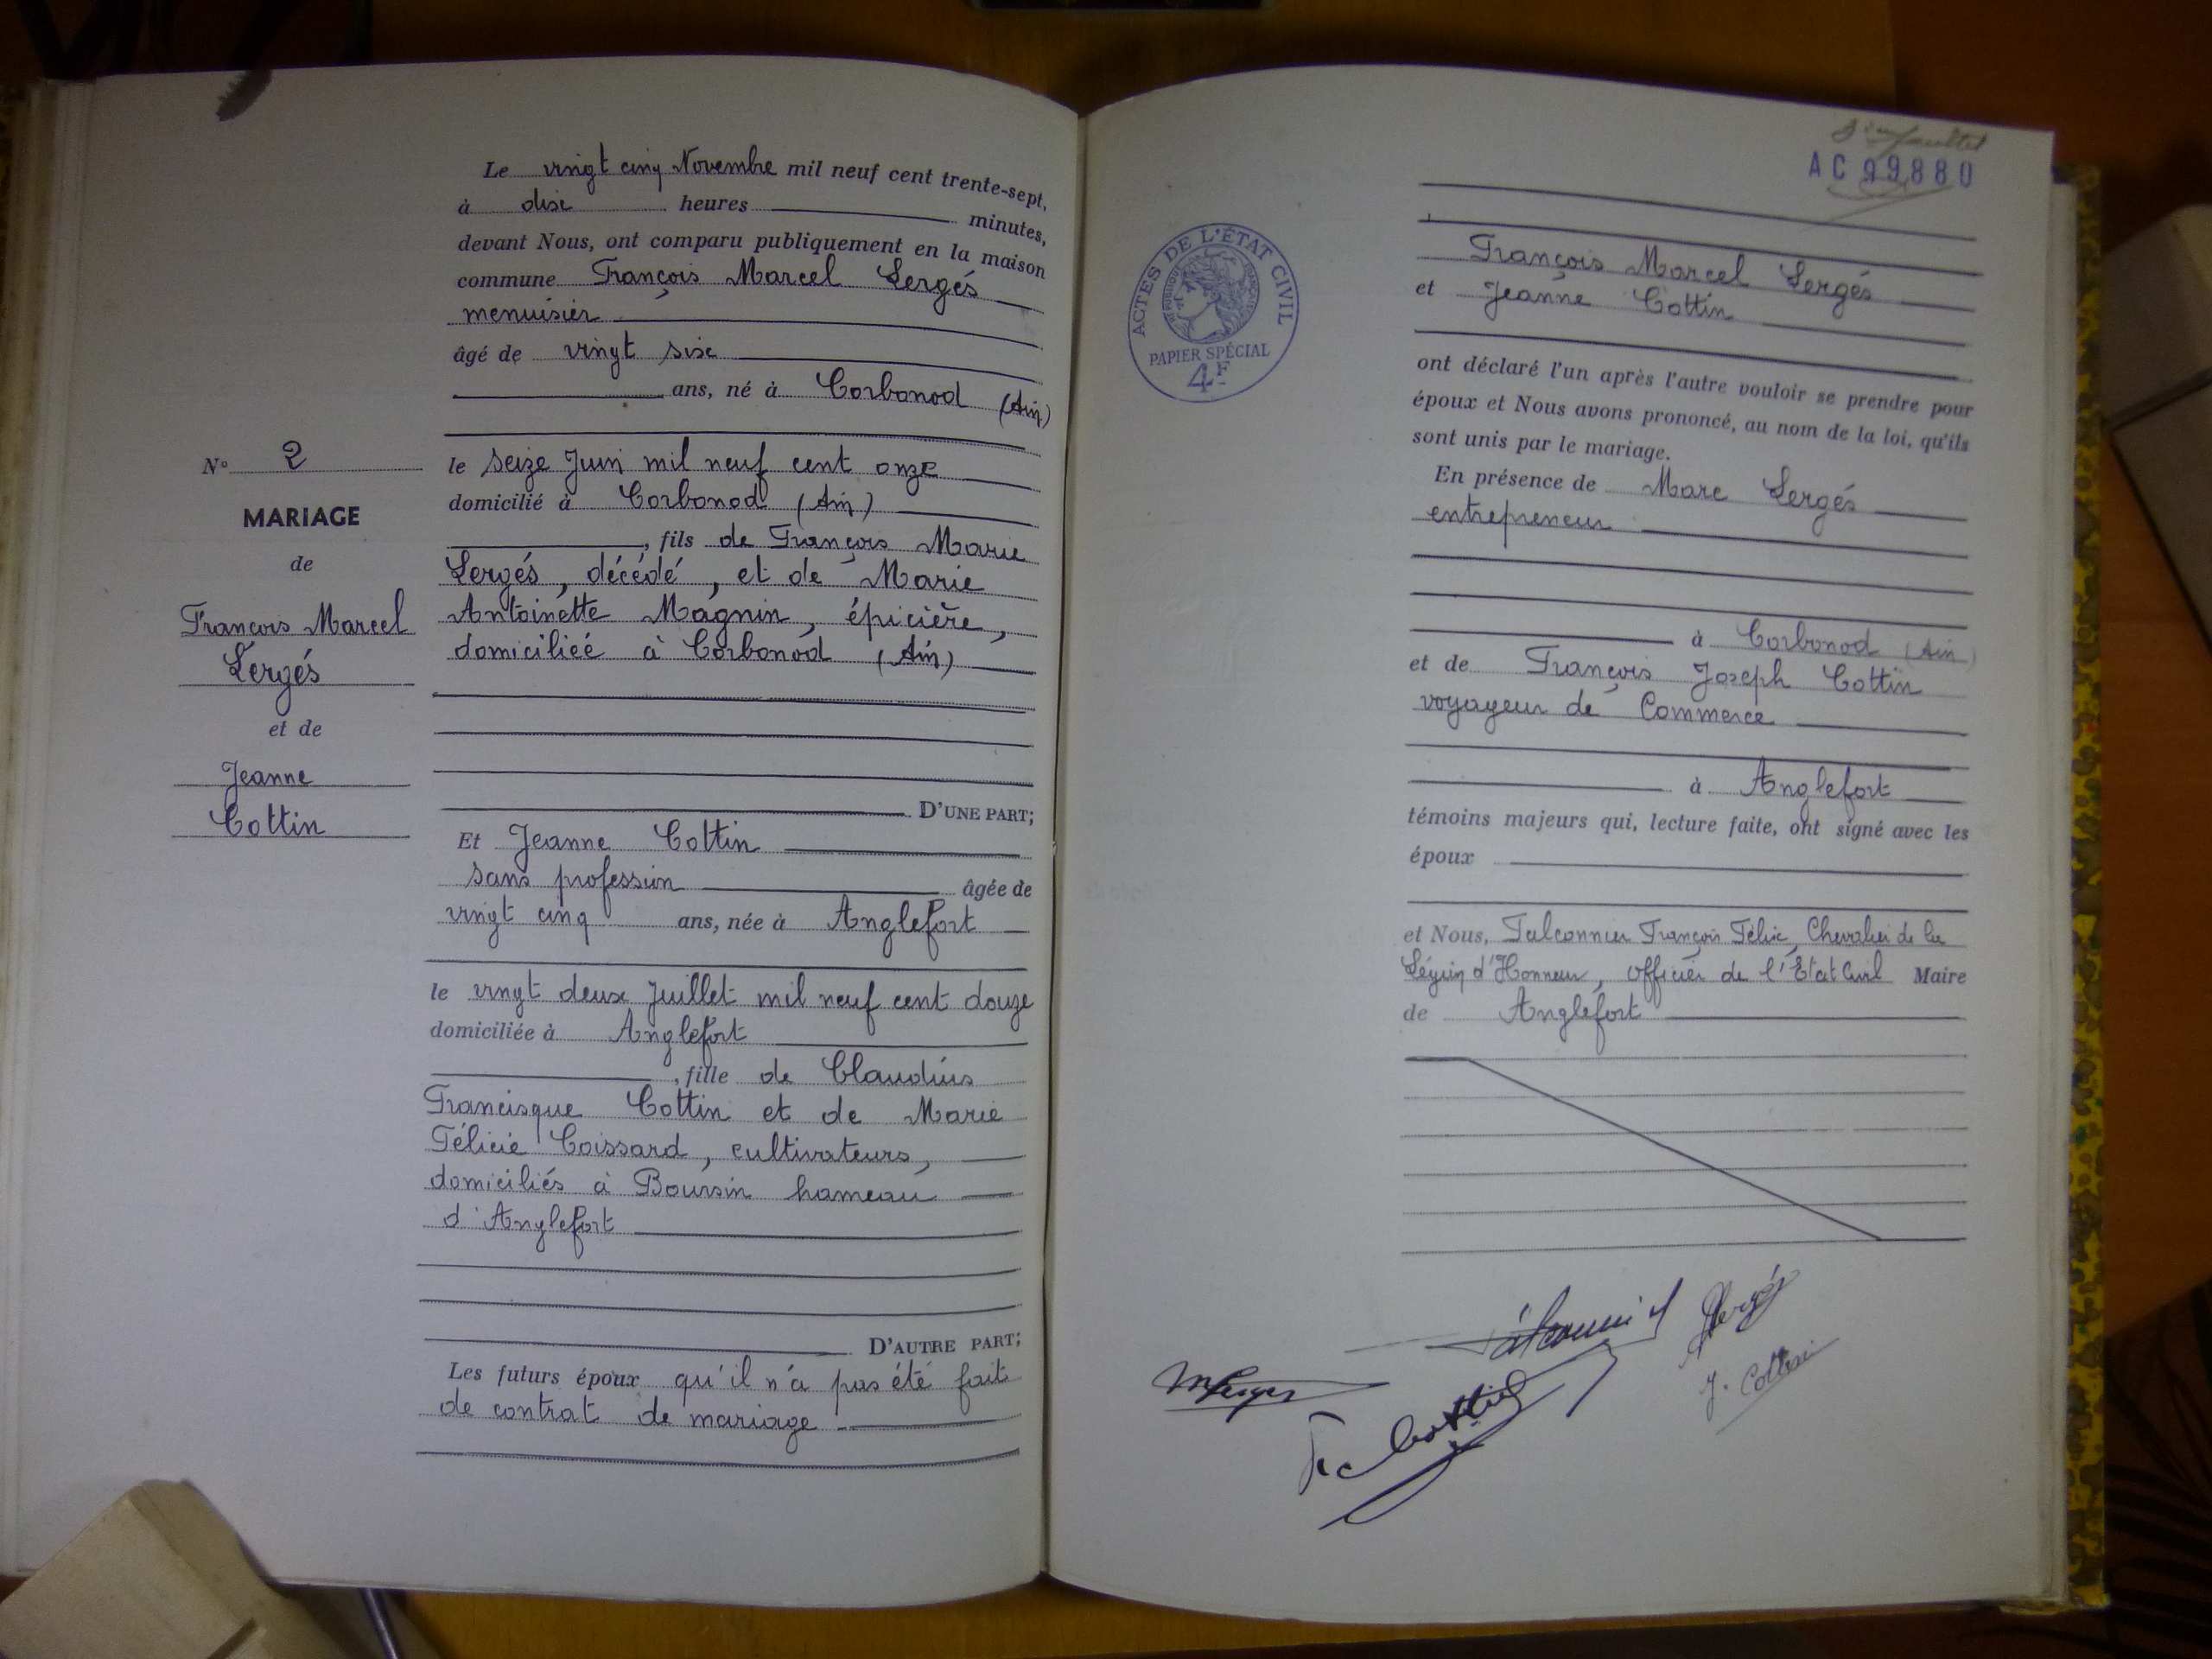 Le vingt cinq Novembre mil neuf cent trente-sept,
à dix heures minutes,
devant Nous, ont comparu publiquement en la maison
commune François Marcel Sergés
menuisier
âgé de vingt six
ans, né à Corbonod (Ain)
N° 2
MARIAGE
de
François Marcel
Sergés
et de
Jeanne
Cottin
le seize Juin mil neuf cent onze
domicilié à Corbonod (Ain)
, fils de François Marie
Sergés, décédé, et de Marie
Antoinette Magnin, épicière,
domiciliée à Corbonod (Ain)
D'UNE PART;
Et Jeanne Cottin
sans profession âgée de
vingt cinq ans, née à Anglefort
le vingt deux Juillet mil neuf cent douze
domiciliée à Anglefort
, fille de Claudius
Francisque Cottin et de Marie
Félicie Coissard, cultivateurs,
domiciliés à Boursin hameau
d'Anglefort
D'AUTRE PART;
Les futurs époux qu'il n'a pas été fait
de contrat de mariage
AC 99880
ACTES DE L'ÉTAT CIVIL
PAPIER SPÉCIAL
4F
François Marcel Sergés
et Jeanne Cottin
ont déclaré l'un après l'autre vouloir se prendre pour
époux et Nous avons prononcé, au nom de la loi, qu'ils
sont unis par le mariage.
En présence de Marc Sergés
entrepreneur
à Corbonod (Ain)
et de François Joseph Cottin
voyageur de Commerce
à Anglefort
témoins majeurs qui, lecture faite, ont signé avec les
époux
et Nous, Falconnier François Félix, Chevalier de la
Légion d'Honneur, Officier de l'Etat Civil Maire
de Anglefort
Sergés
J. Cottin
Cottin